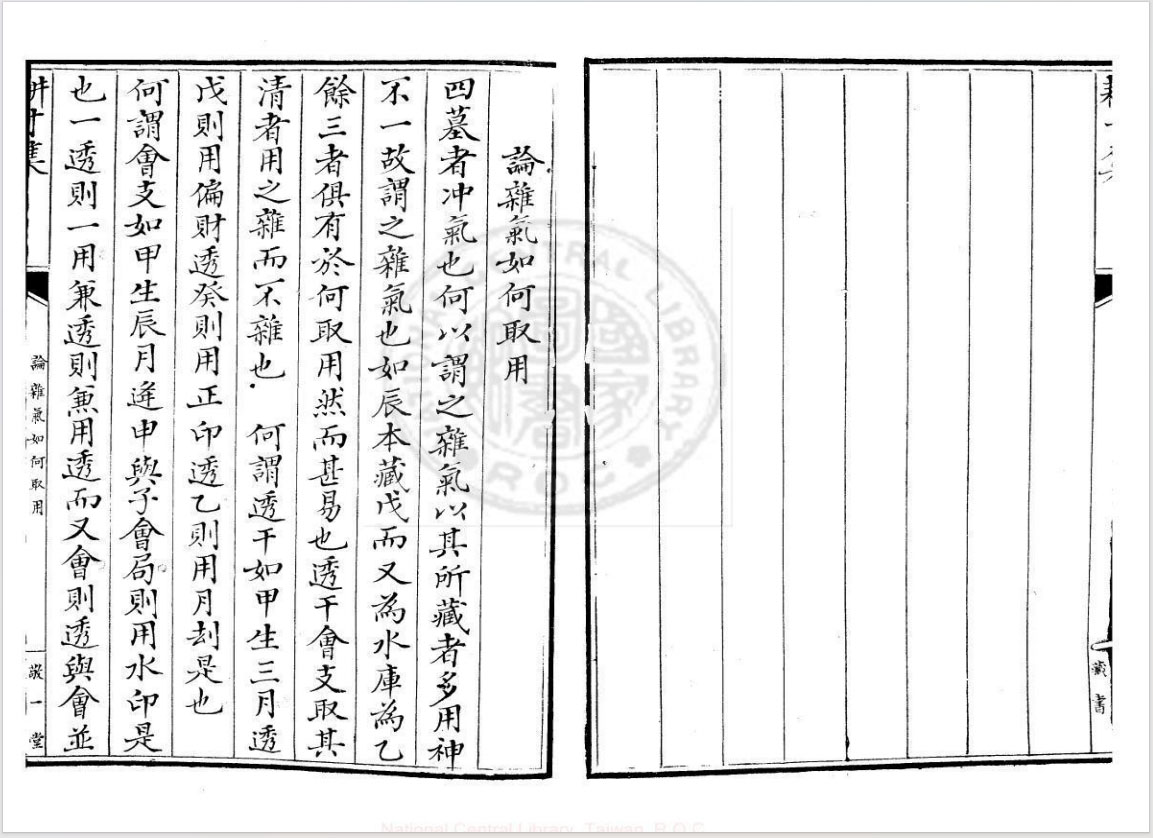 藏書
論雜氣如何取用
四墓者冲氣也何以謂之雜氣以其所藏者多用神
不一故謂之雜氣也如辰本藏戊而又為水庫為乙
餘三者俱有於何取用然而甚易也透干會支取其
清者用之雜而不雜也 何謂透干如甲生三月透
戊則用偏財透癸則用正印透乙則用月刦是也
何謂會支如甲生辰月逢申與子會局則用水印是
也一透則一用兼透則兼用透而又會則透與會並
論雜氣如何取用
敬一堂
National Central Library, Taiwan, R.O.C